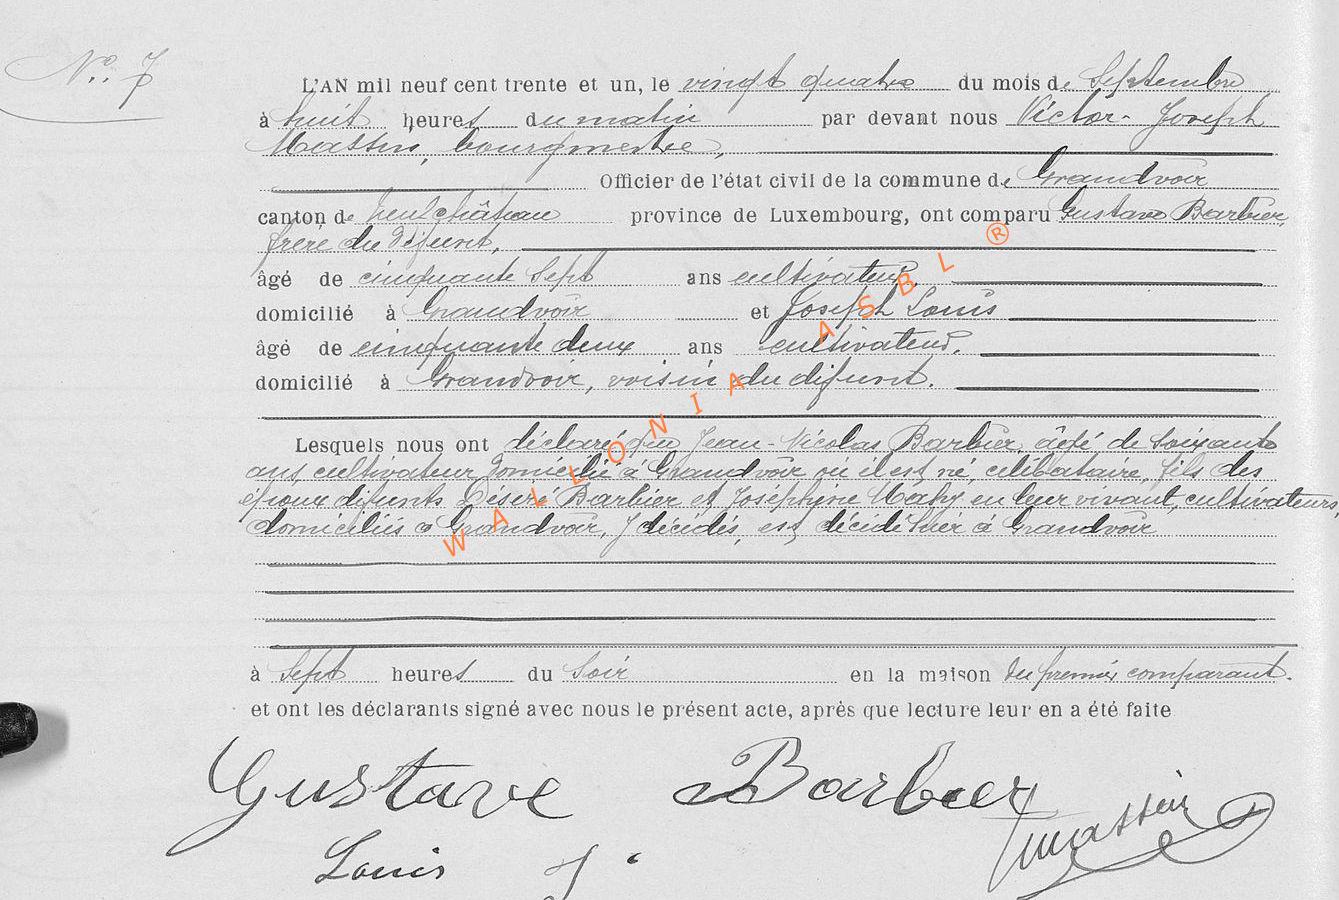 No. 7
L'AN mil neuf cent trente et un, le vingt quatre du mois de Septembre
à huit heures du matin par devant nous Victor-Joseph
Massin, bourgmestre,
Officier de l'état civil de la commune de Grandvoir
canton de Neufchâteau province de Luxembourg, ont comparu Gustave Barbier,
frère du défunt,
âgé de cinquante sept ans cultivateur,
domicilié à Grandvoir et Joseph Louis
âgé de cinquante deux ans cultivateur,
domicilié à Grandvoir, voisin du défunt.
Lesquels nous ont déclaré que Jean-Nicolas Barbier, âgé de soixante
ans, cultivateur domicilié à Grandvoir où il est né, célibataire, fils des
époux défunts Désiré Barbier et Joséphine Mahy en leur vivant, cultivateurs,
domiciliés à Grandvoir, y décédés, est décédé hier à Grandvoir
à sept heures du soir en la maison du premier comparant.
et ont les déclarants signé avec nous le présent acte, après que lecture leur en a été faite
Gustave Barbier
Massin
Louis J
WALLONIA ASBL ®